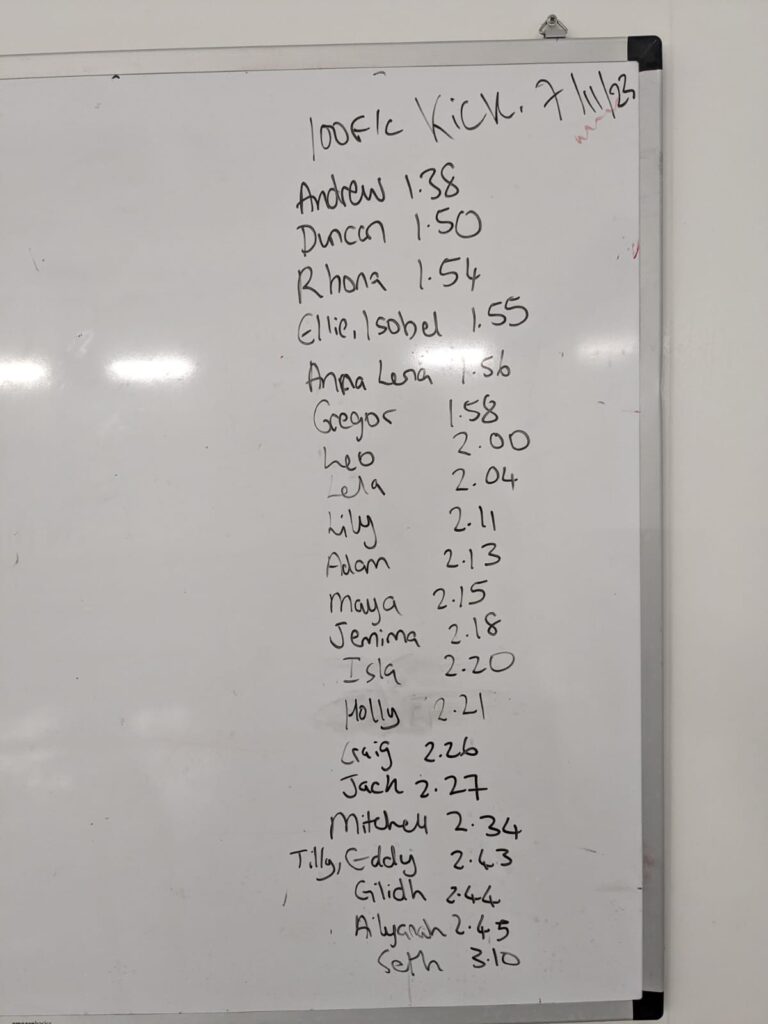 100F/c Kick. 7/11/23
Andrew 1.38
Duncan 1.50
Rhona 1.54
Ellie, Isobel 1.55
Anna Lena 1.56
Gregor 1.58
Leo 2.00
Lela 2.04
Lily 2.11
Adam 2.13
Maya 2.15
Jemima 2.18
Isla 2.20
Holly 2.21
Craig 2.26
Jack 2.27
Mitchell 2.34
Tilly, Eddy 2.43
Gilidh 2.44
Ailyanah 2.45
Seth 3.10